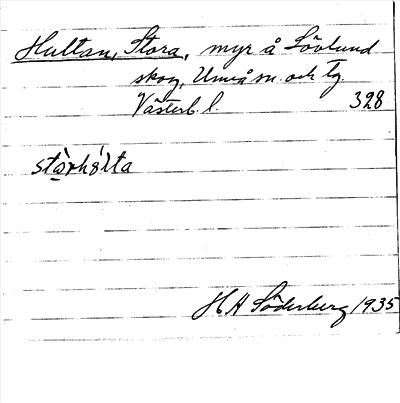 Hultan, Stora, myr å Sövlund
skog, Umeå sn. och tg
Västerb. l. 328
stòrhǒlta
H A Söderberg 1935